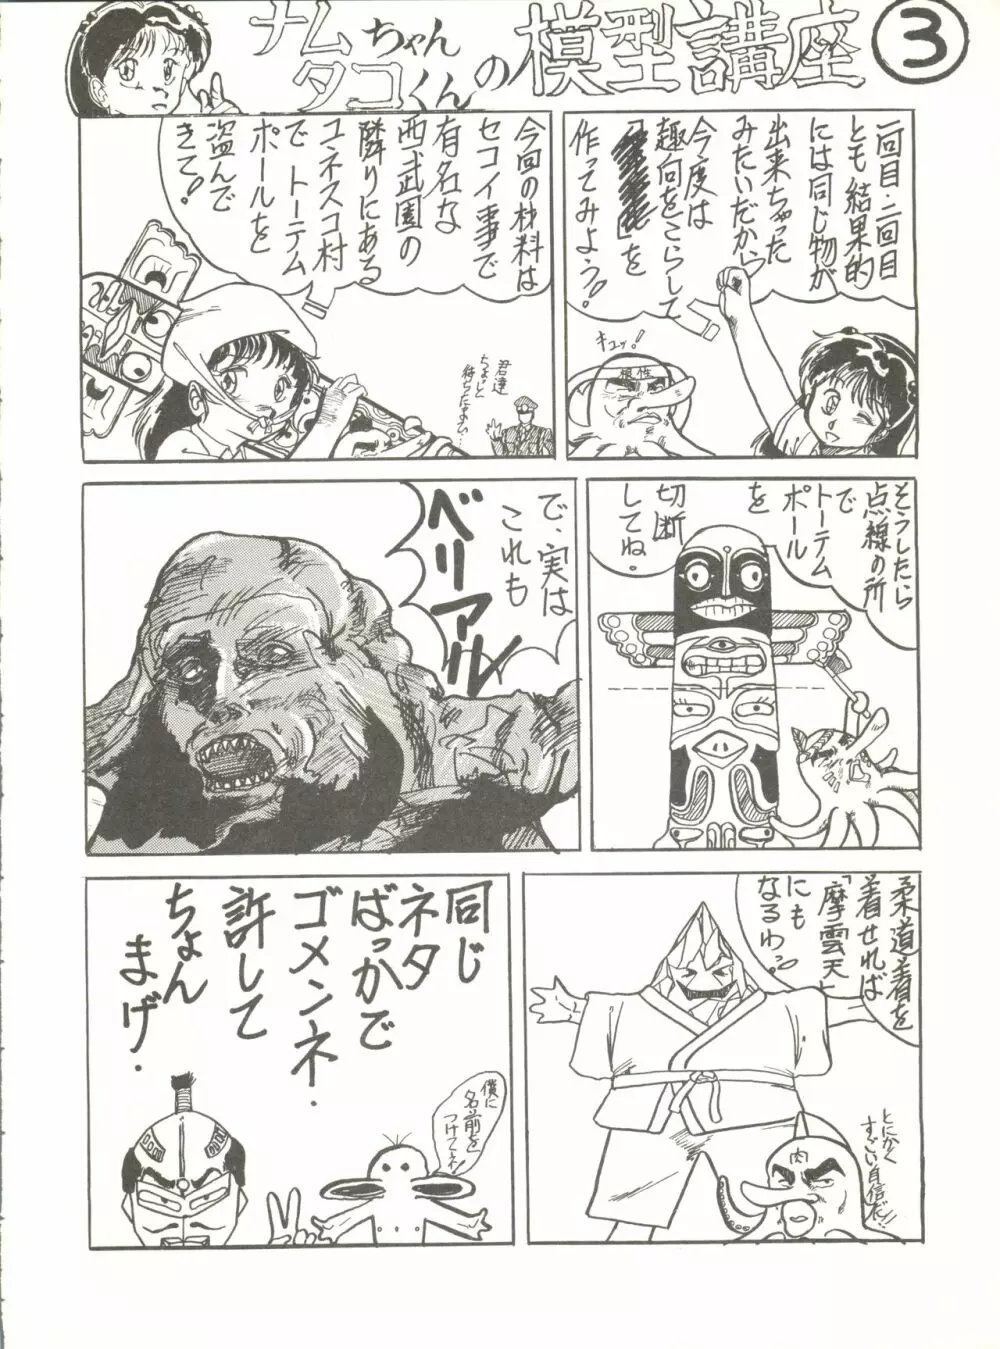 ナムちゃん
タコくんの
模型講座
3
一回目・二回目
とも結果的
には同じ物が
出来ちゃった
みたいだから
今度は
趣向をこらして
」を
作ってみよう!
キュッ!
根性
今回の材料は
セコイ事で
有名な
西武園の
隣りにある
ユネスコ村
でトーテム
ポールを
盗んで
きて!
君達
ちょっと
待ちたまえ…
そうしたら
点線の所
で
トーテム
ポール
を
切断
してね。
で、実は
これも
ベリアル
柔道着を
着せれば
「摩雲天」
にも
なるわっ
肉
とにかく
すごい自信だ!
同じ
ネタ
ばっかで
ゴメンネ・
許して
ちょん
まげ・
僕に
名前を
つけてネ!